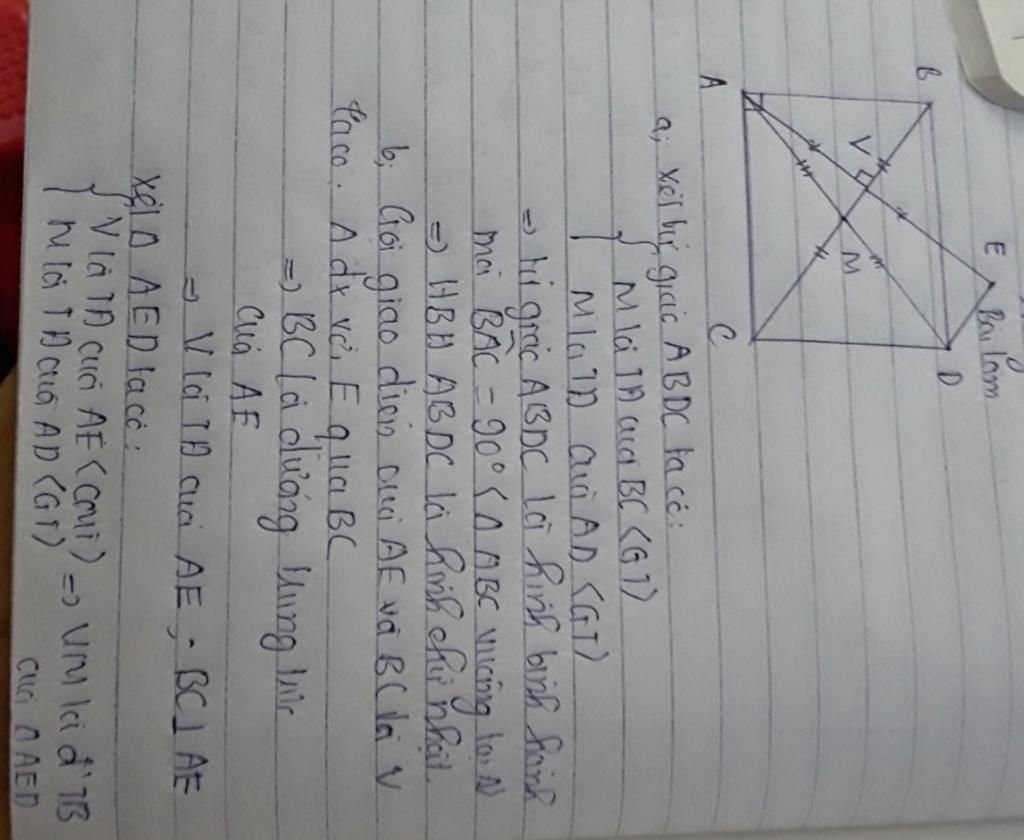 Bài làm
B
E
D
V
M
A
C
a, xét tứ giác ABDC ta có:
M là TĐ của BC <GT>
M là TĐ của AD <GT>
=> tứ giác ABDC là hình bình hành
mà BAC = 90° < Δ ABC vuông tại A
=> HBH ABDC là hình chữ nhật.
b, Gọi giao điểm của AE và BC là V
ta có: A đx với E qua BC
=> BC là đường trung trực
của AE
=> V là TĐ của AE, - BC ⊥ AE
xét Δ AED ta có:
V là TĐ của AE <cmt>
M là TĐ của AD <GT> => VM là đTB
của Δ AED